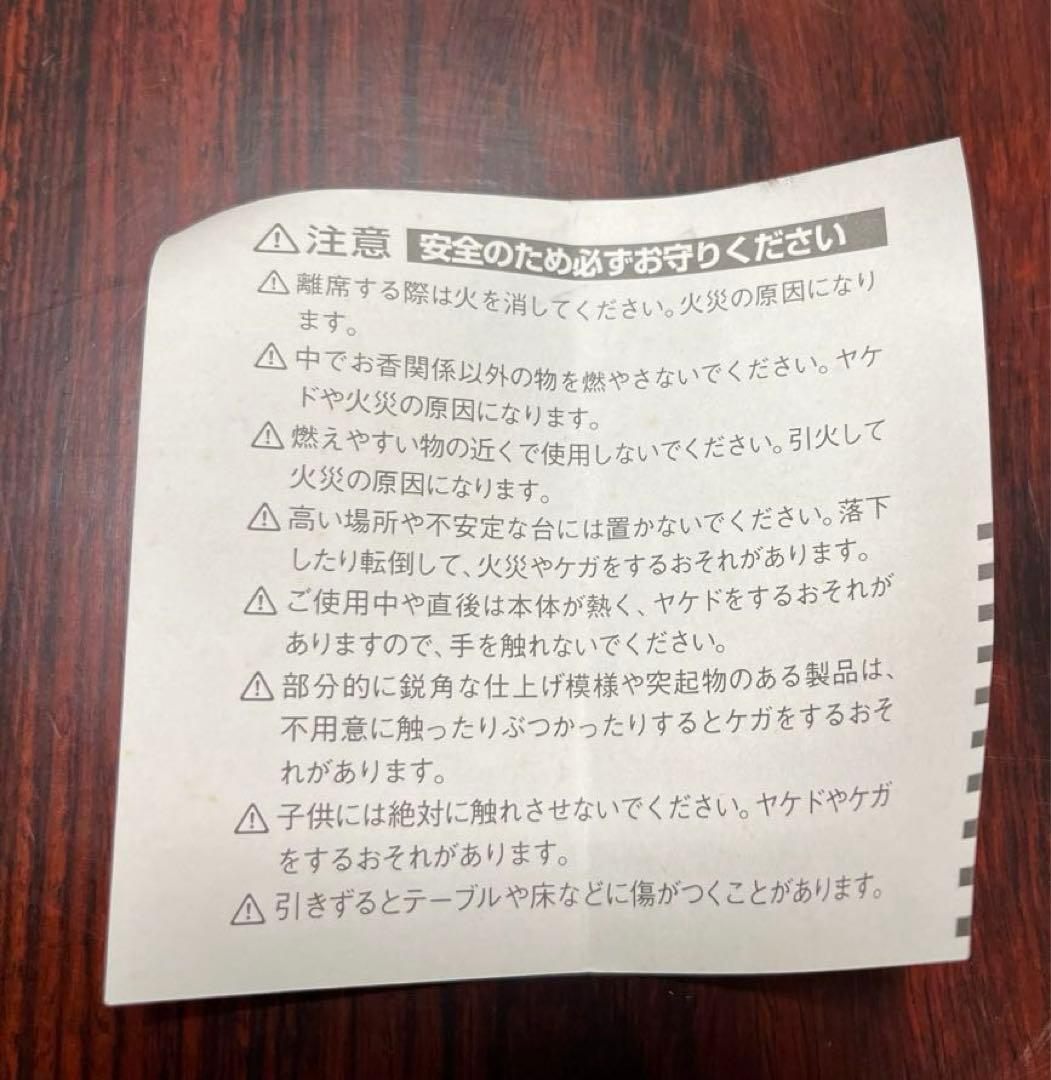 ⚠注意 安全のため必ずお守りください
⚠離席する際は火を消してください。火災の原因になり
ます。
⚠中でお香関係以外の物を燃やさないでください。ヤケ
ドや火災の原因になります。
⚠燃えやすい物の近くで使用しないでください。引火して
火災の原因になります。
⚠高い場所や不安定な台には置かないでください。落下
したり転倒して、火災やケガをするおそれがあります。
⚠ご使用中や直後は本体が熱く、ヤケドをするおそれが
ありますので、手を触れないでください。
⚠部分的に鋭角な仕上げ模様や突起物のある製品は、
不用意に触ったりぶつかったりするとケガをするおそ
れがあります。
⚠子供には絶対に触れさせないでください。ヤケドやケガ
をするおそれがあります。
⚠引きずるとテーブルや床などに傷がつくことがあります。